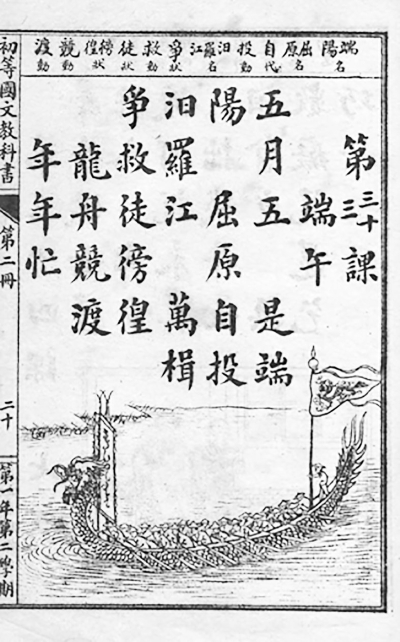 端陽名 屈原名 自代 投動 汨羅江名 爭狀 救動 徒狀 徬徨狀 競動 渡動
第三十三課
端午
五月五 是端
陽 屈原自投
汨羅江 萬楫
爭救徒徬徨
龍舟競渡
年年忙
初等國文教科書 第二冊 二十 第一年第二學期